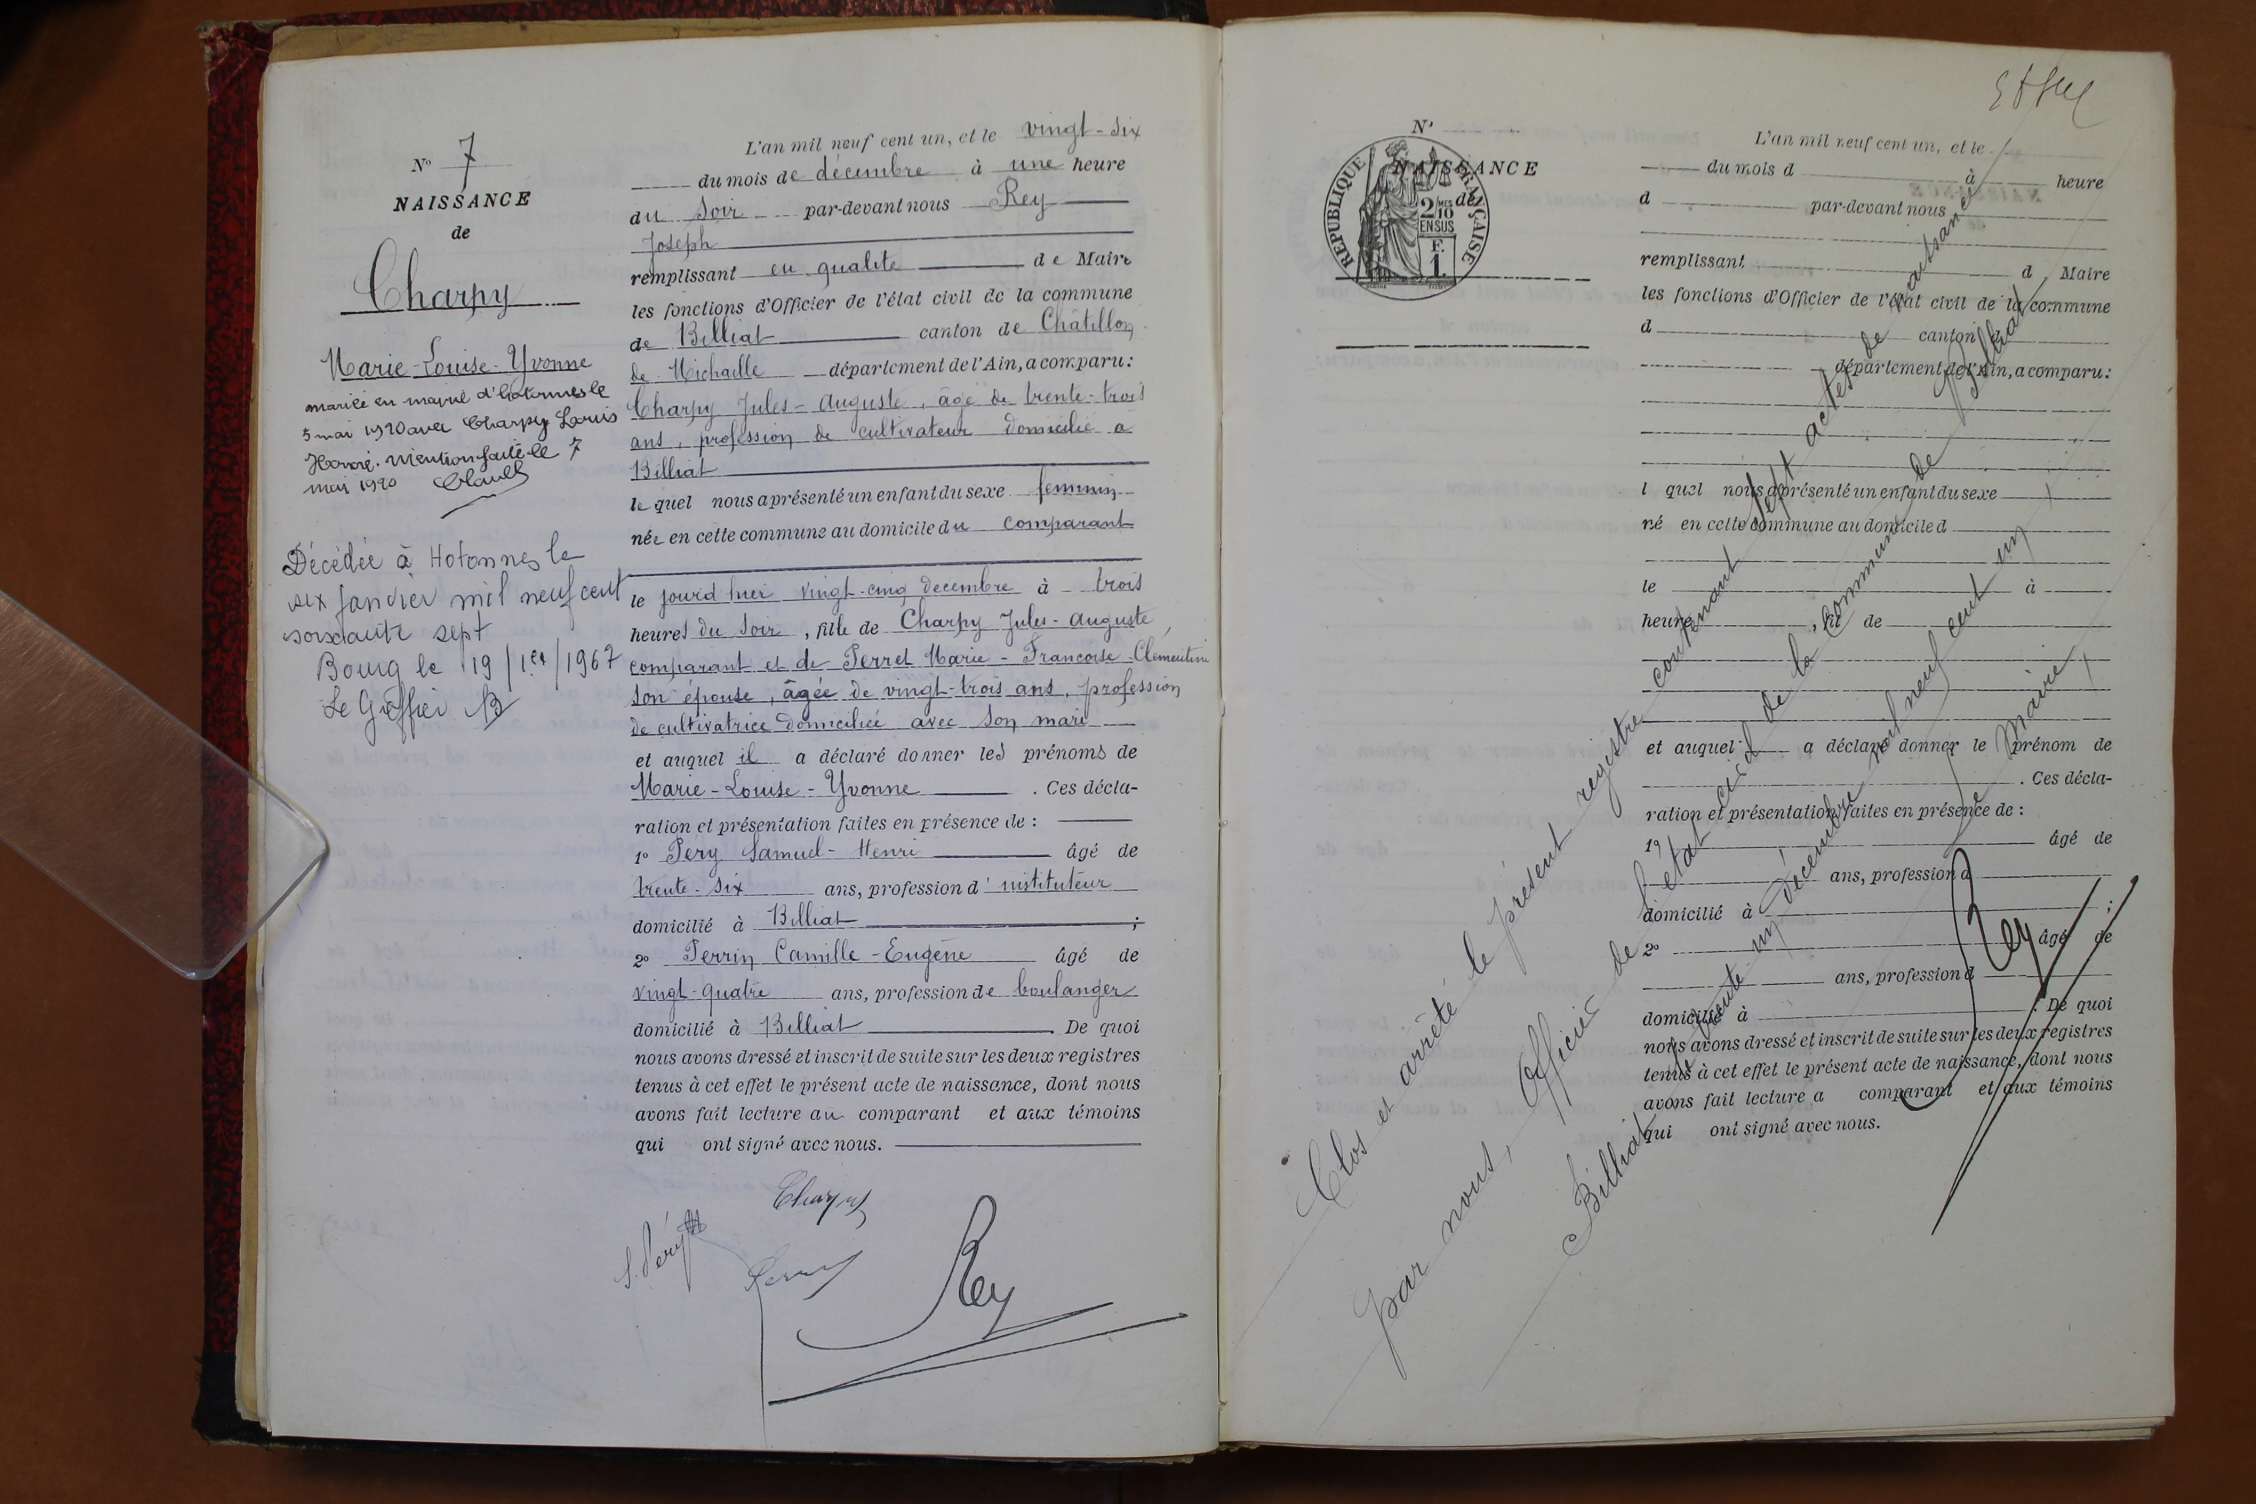 N° 7
NAISSANCE
de
Charpy
Marie-Louise-Yvonne
mariée en mairie d'Hotonnes le
5 mai 1920 avec Charpy Louis
Honoré. Mention faite le 7
mai 1920
Décédée à Hotonnes le
six janvier mil neuf cent
soixante sept
Bourg le 19/1er/1967
Le Greffier
L'an mil neuf cent un, et le vingt-six
du mois de décembre à une heure
du soir par-devant nous Rey
Joseph
remplissant en qualité de Maire
les fonctions d'Officier de l'état civil de la commune
de Billiat canton de Châtillon
de Michaille département de l'Ain, a comparu:
Charpy Jules-Auguste, âgé de trente-trois
ans, profession de cultivateur domicilié à
Billiat
le quel nous a présenté un enfant du sexe féminin
née en cette commune au domicile du comparant
le jourd'hier vingt-cinq decembre à trois
heures du soir, fille de Charpy Jules-Auguste
comparant et de Perret Marie-Francoise-Clémentine
son épouse, âgée de vingt-trois ans, profession
de cultivatrice domiciliée avec son mari
et auquel il a déclaré donner les prénoms de
Marie-Louise-Yvonne. Ces décla-
ration et présentation faites en présence de:
1° Péry Samuel-Henri âgé de
trente-six ans, profession d'instituteur
domicilié à Billiat;
2° Perrin Camille-Eugène âgé de
vingt-quatre ans, profession de boulanger
domicilié à Billiat. De quoi
nous avons dressé et inscrit de suite sur les deux registres
tenus à cet effet le présent acte de naissance, dont nous
avons fait lecture au comparant et aux témoins
qui ont signé avec nous.
Charpy
S. Péry
Perrin
Rey
N°
NAISSANCE
de
RÉPUBLIQUE FRANÇAISE
2/10 MES
EN SUS
F.
1.
L'an mil neuf cent un, et le
du mois d à heure
d par-devant nous
remplissant d Maire
les fonctions d'Officier de l'état civil de la commune
d canton d
département de l'Ain, a comparu:
l quel nous a présenté un enfant du sexe
né en cette commune au domicile d
le à
heure, fil de
et auquel a déclaré donner le prénom de
. Ces décla-
ration et présentation faites en présence de:
1° âgé de
ans, profession d
domicilié à ;
2° âgé de
ans, profession d
domicilié à . De quoi
nous avons dressé et inscrit de suite sur les deux registres
tenus à cet effet le présent acte de naissance, dont nous
avons fait lecture a comparant et aux témoins
qui ont signé avec nous.
Clos et arrêté le présent registre contenant sept actes de naissance
par nous, Officier de l'état civil de la Commune de Billiat
Billiat le trente-un décembre mil neuf cent un
Le Maire,
Rey